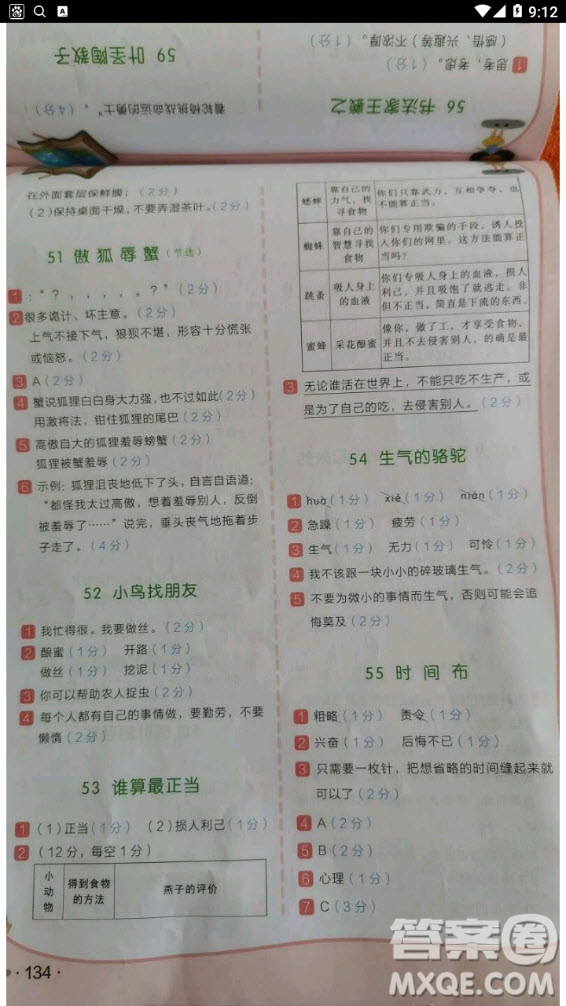 9:12
1 思考，考虑。（1分）
（感悟、兴趣等）不浓厚。（1分）
56 书法家王羲之
着轮椅挑战命运的勇士”。（4分）
59 叶圣陶教子
在外面套层保鲜膜；（2分）
（2）保持桌面干燥，不要弄湿茶叶。（2分）
51 傲狐辱蟹（节选）
1 ：“？，，，，。？”（2分）
2 很多诡计、坏主意。（2分）
上气不接下气，狼狈不堪，形容十分慌张
或恼怒。（2分）
3 A（2分）
4 蟹说狐狸白白身大力强，也不过如此（2分）
用激将法，钳住狐狸的尾巴（2分）
5 高傲自大的狐狸羞辱螃蟹（2分）
狐狸被蟹羞辱（2分）
6 示例：狐狸沮丧地低下了头，自言自语道：
“都怪我太过高傲，想着羞辱别人，反倒
被羞辱了……”说完，垂头丧气地拖着步
子走了。（4分）
52 小鸟找朋友
1 我忙得很。我要做丝。（2分）
2 酿蜜（1分） 开路（1分）
做丝（1分） 挖泥（1分）
3 你可以帮助农人捉虫（2分）
4 每个人都有自己的事情做，要勤劳，不要
懒惰（2分）
53 谁算最正当
1 （1）正当（1分） （2）损人利己（1分）
2 （12分，每空1分）
小动物 得到食物的方法 燕子的评价
蟋蟀 靠自己的力气，找寻食物 你们只靠武力，互相争夺，也不能算正当。
蜘蛛 靠自己的智慧寻找食物 你们专用欺骗的手段，诱人投入你们的网里。这方法能算正当吗？
跳蚤 吸人身上的血液 你们专吸人身上的血液，损人利己，并且吸饱了就逃走。非但不正当，简直是下流的东西。
蜜蜂 采花酿蜜 像你，做了工，才享受食物，并且不去侵害别人，的确是最正当。
3 无论谁活在世界上，不能只吃不生产，或
是为了自己的吃，去侵害别人。（2分）
54 生气的骆驼
1 huá（1分） xiě（1分） nián（1分）
2 急躁（1分） 疲劳（1分）
3 生气（1分） 无力（1分） 可怜（1分）
4 我不该跟一块小小的碎玻璃生气。（2分）
5 不要为微小的事情而生气，否则可能会追
悔莫及（2分）
55 时间布
1 粗略（1分） 责令（1分）
2 兴奋（1分） 后悔不已（1分）
3 只需要一枚针，把想省略的时间缝起来就
可以了（2分）
4 A（2分）
5 B（2分）
6 心理（1分）
7 C（3分）
·134·
答案圈
MXQE.COM